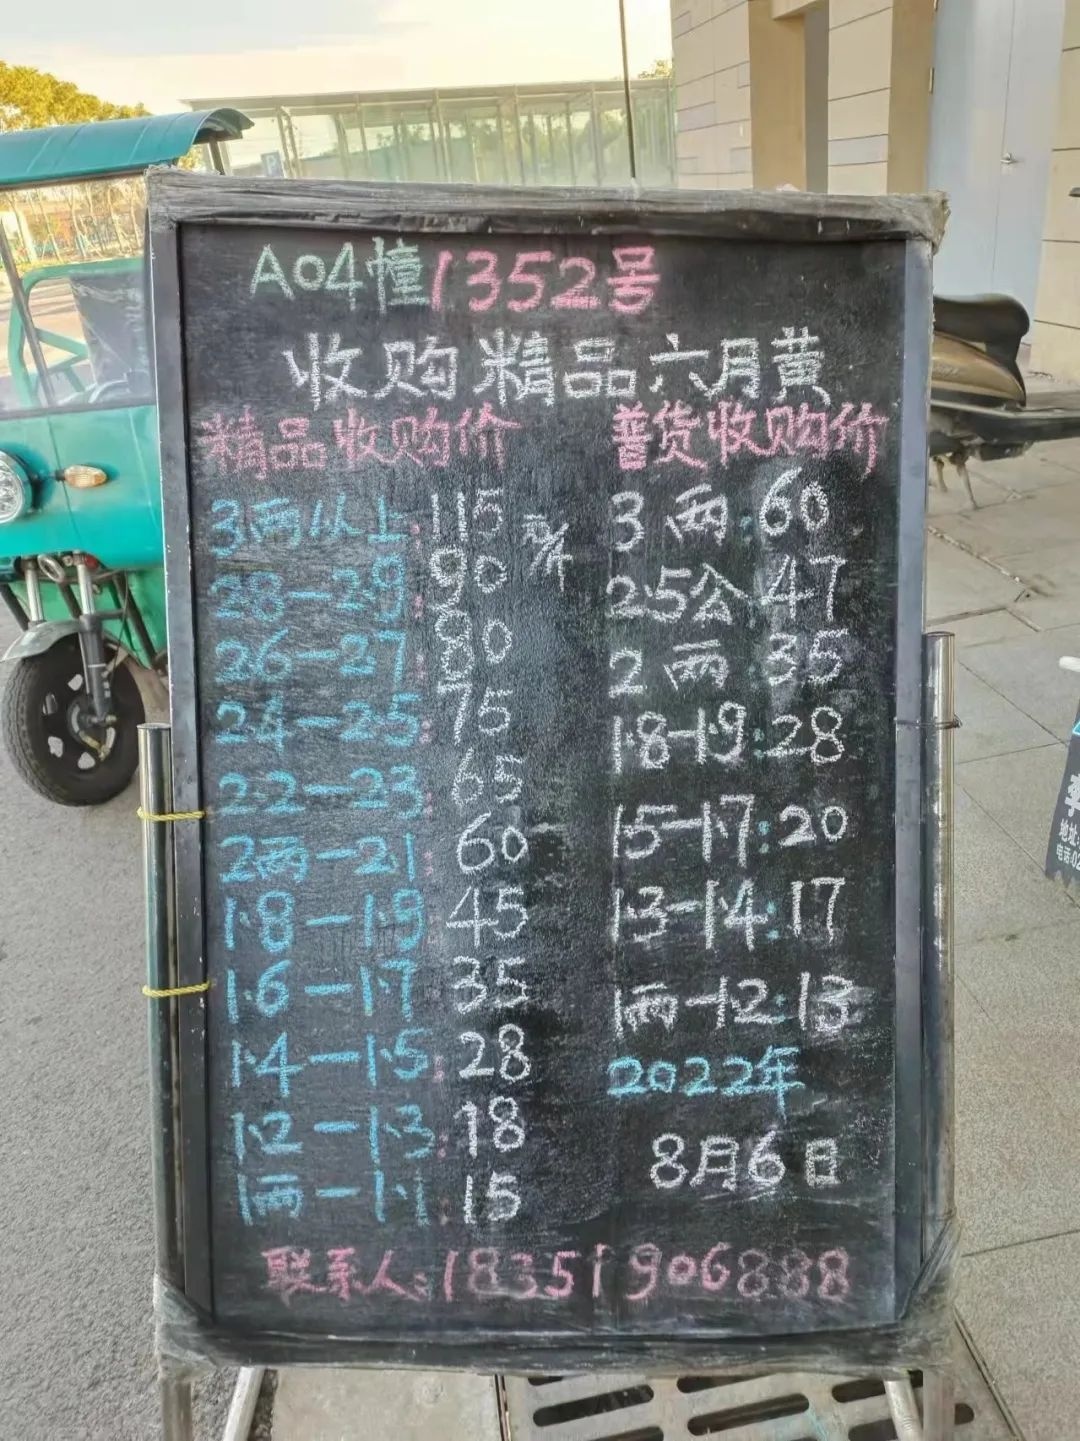 A04幢1352号
收购精品六月黄
精品收购价
3两以上:115元/斤
28-29:90
26-27:80
24-25:75
2.2-23:65
2两-2.1:60
1.8-1.9:45
1.6-1.7:35
1.4-1.5:28
1.2-1.3:18
1两-1.1:15
普货收购价
3两:60
2.5公:47
2两:35
1.8-1.9:28
1.5-1.7:20
1.3-1.4:17
1两-1.2:13
2022年
8月6日
联系人:18351906888
P
地址:
电话:0